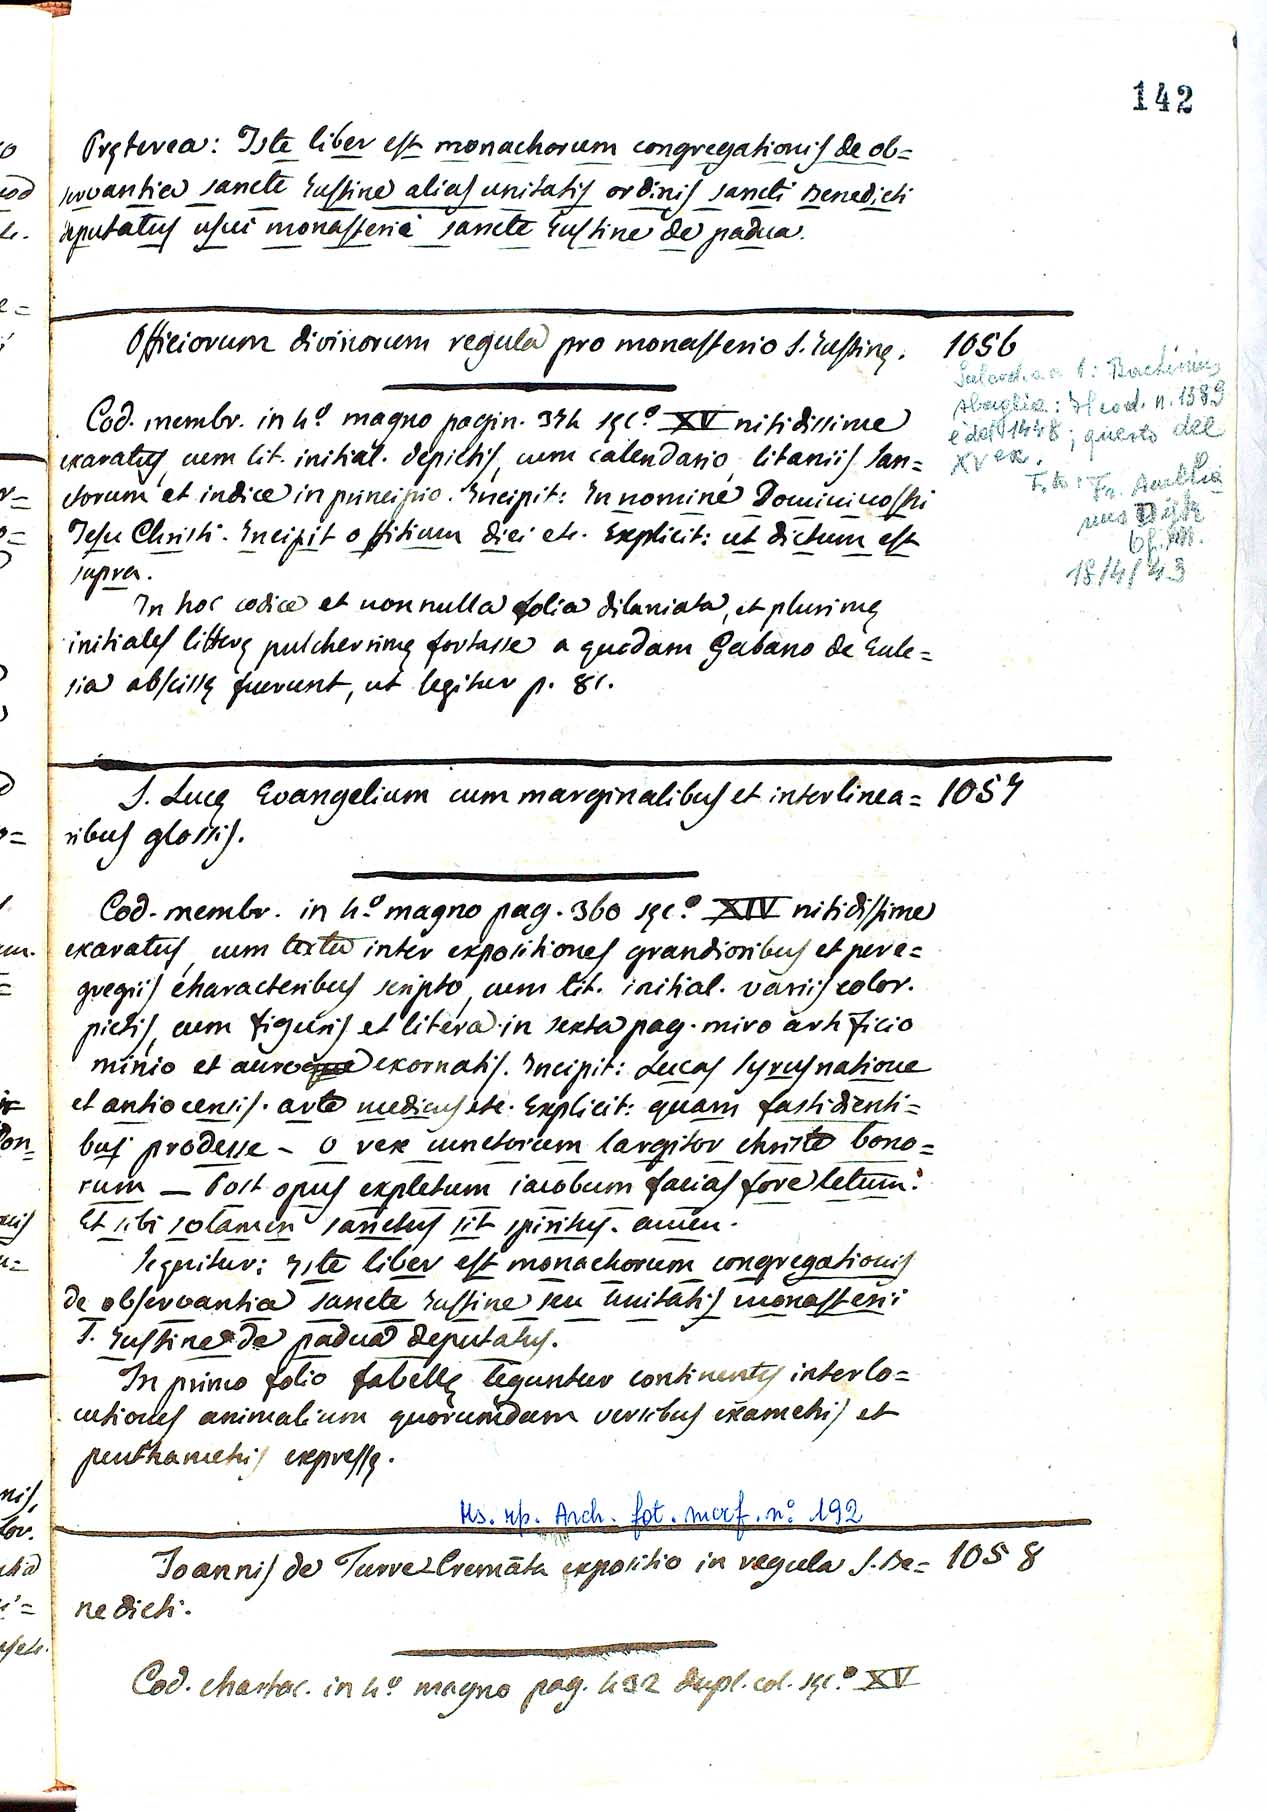 142
Pręterea: Iste liber est monachorum congregationis de ob=
servantia sancte Iustine alias unitatis ordinis sancti Benedicti
deputatus usui monasterii sancte Iustine de padua.
Officiorum divinorum regula pro monasterio S. Iustinę. 1056
Cod. membr. in 4º magno pagin. 374 sęcº XV nitidissime
exaratus, cum lit. initial. depictis, cum calendario, litaniis San=
ctorum et indice in principio. Incipit: In nomine Domini nostri
Iesu Christi. Incipit offitium diei etc. Explicit: ut dictum est
supra.
In hoc codice et nonnulla folia dilaniata, et plurimę
initiales litterę pulcherrimę fortasse a quodam Gabano de Eule=
sia abscissę fuerunt, ut legitur p. 81.
1: Bachinius
sbaglia: Il cod. n. 1389
è del 1448; questo del
XV ex.
F.to: Fr.
18/4/43
S. Lucę Evangelium cum marginalibus et interlinea= 1057
ribus glossis.
Cod. membr. in 4.º magno pag. 360 sęc.º XIV nitidissime
exaratus, cum textu inter expositiones grandioribus et pere=
gregiis characteribus scripto, cum lit. initial. variis color.
pictis, cum figuris et litera in sexta pag. miro artificio
minio et auro exornatis. Incipit: Lucas syrus natione
et antiocensis. arte medicus etc. Explicit: quam fastidienti=
bus prodesse – O rex cunctorum largitor christe bono=
rum — Post opus expletum iacobum facias fore letum:
Et sibi solamen sanctus sit spiritus. amen.
Sequitur: Iste liber est monachorum congregationis
de observantia sancte Iustine seu unitatis monasterii
S. Iustine de padua deputatus.
In primo folio fabellę leguntur continentes interlo=
cutiones animalium quorumdam versibus exametris et
penthametris expressę.
Ms. rip. Arch. fot. morf. n.º 192
Joannis de Turre Cremāta expositio in regula S. Be= 1058
nedicti.
Cod. chartac. in 4º magno pag. 432 dupl. col. sęc.º XV